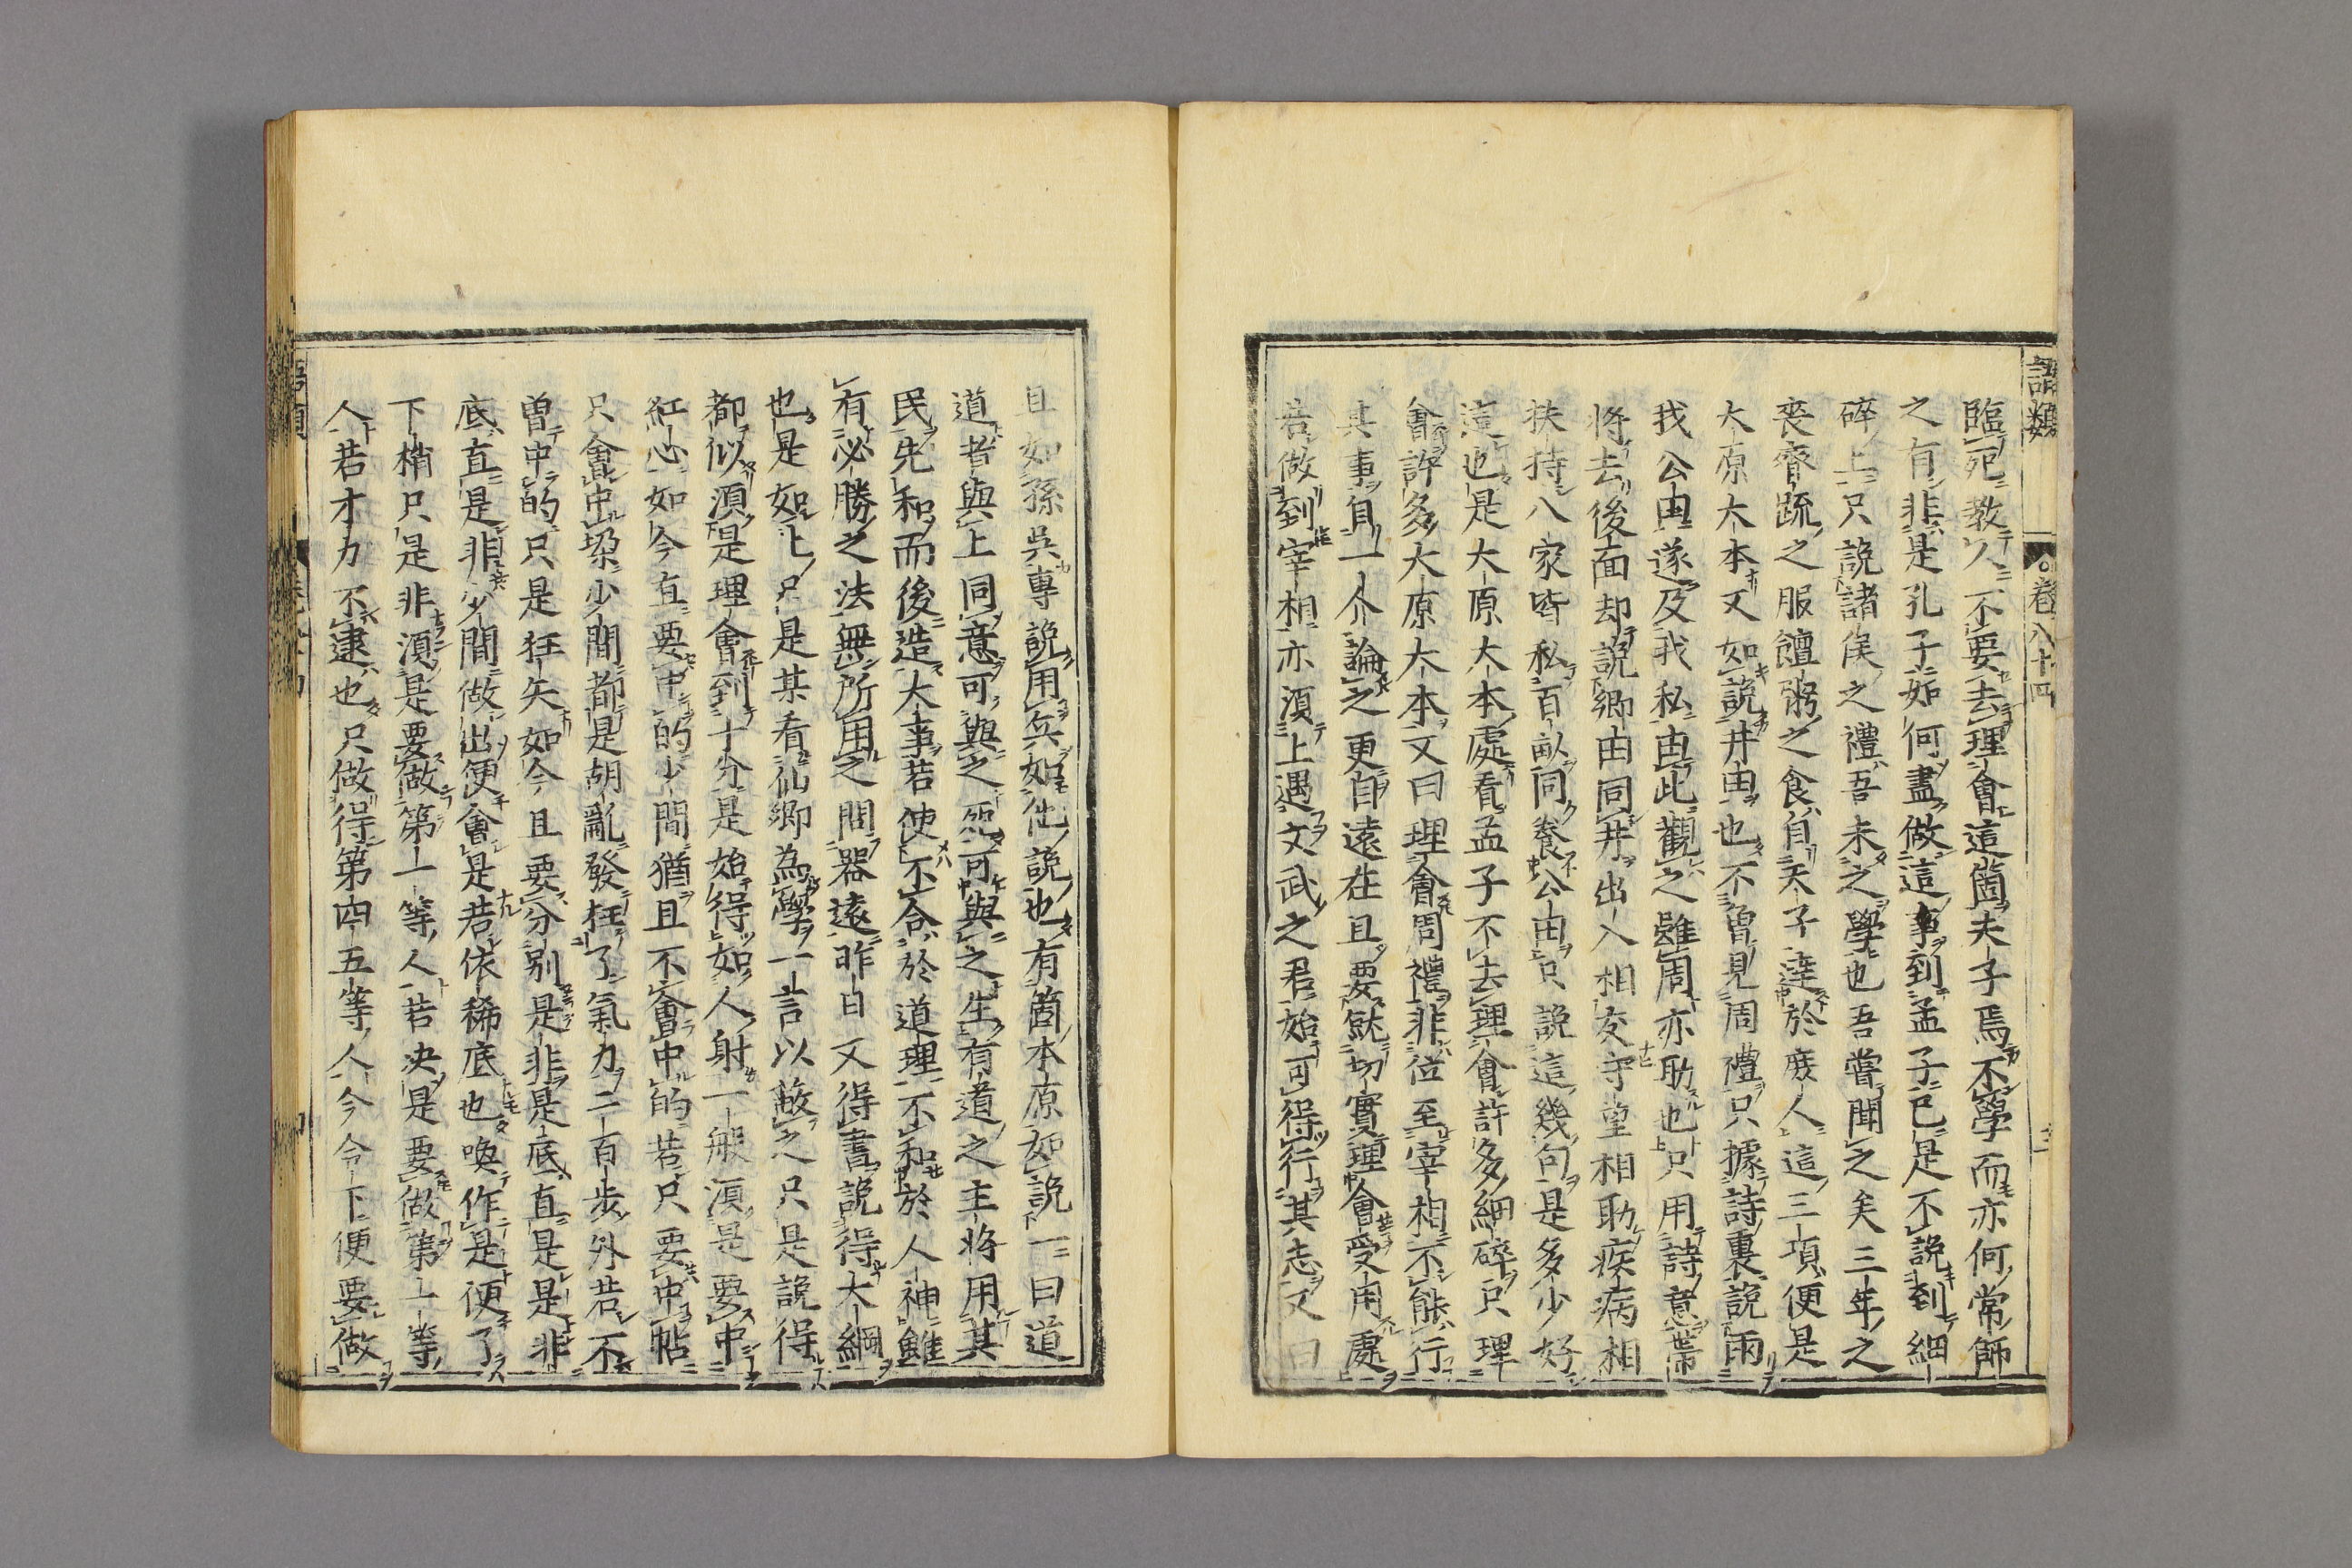 語類 卷八十四
臨死教人不要去理會這箇夫子焉不學而亦何常師
之有非是孔子如何盡做這事到孟子已是不說到細
碎上只說諸侯之禮吾未之學也吾嘗聞之矣三年之
喪齊疏之服饘粥之食自天子達於庶人這三項便是
大原大本又如說井田也不曾見周禮只據詩裏說雨
我公田遂及我私由此觀之雖周亦助也只用詩意帶
將去後面却說鄉田同井出入相友守望相助疾病相
扶持八家皆私百畝同養公田只說這幾句是多少好
這也是大原大本處看孟子不去理會許多細碎只理
會許多大原大本又曰理會周禮非位至宰相不能行
其事自一介論之更自遠在且要就切實理會受用處
若做到宰相亦須上遇文武之君始可得行其志又曰
且如孫吳專說用兵如他說也有箇本原如說一曰道
道者與上同意可與之死可與之生有道之主將用其
民先和而後造大事若使不合於道理不和於人神雖
有必勝之法無所用之問器遠昨日又得書說得大綱
也是如此只是某看仙鄉為學一言以蔽之只是說得
都似須是理會到十分是始得如人射一般須是要中
紅心如今直要中的少間猶且不會中的若只要中帖
只會中垜少間都是胡亂發枉了氣力三百步外若不
曾中的只是枉矢如今且要分別是非是底直是是非
底直是非少間做出便會是若依稀底也喚作是便了
下梢只是非須是要做第一等人若決是要做第一等
人若才力不逮也只做得第四五等人今今下便要做